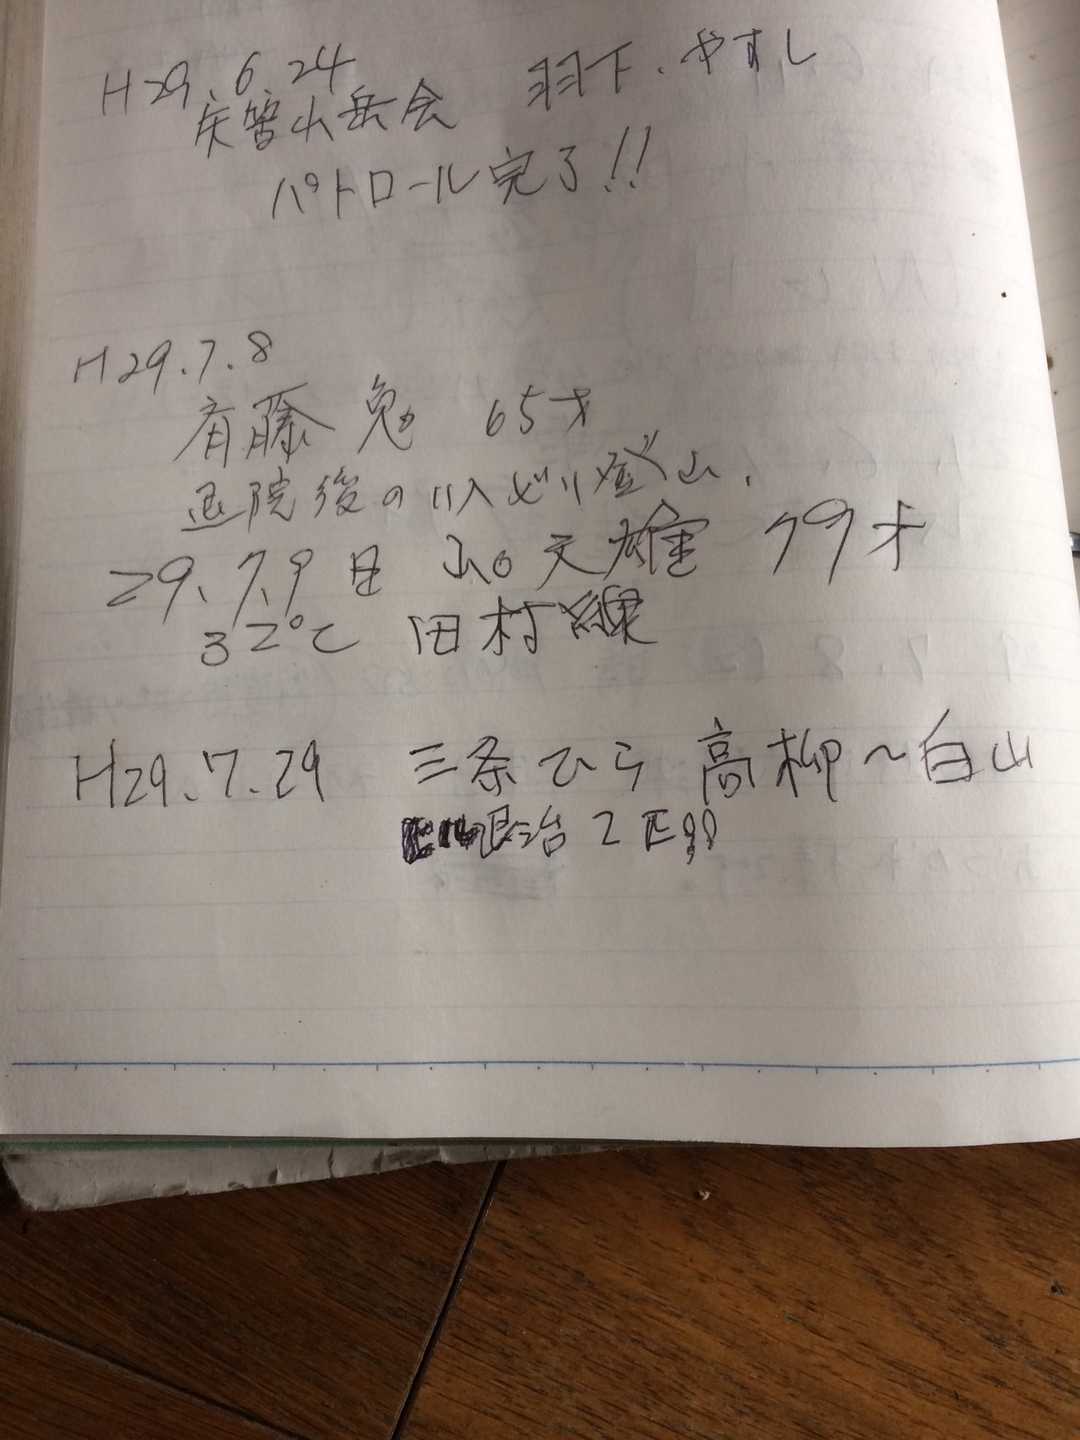 H29.6.24
矢筈山岳会 羽下、やすし
パトロール完了!!
H29.7.8
斉藤 勉 65才
退院後のリハビリ登山、
29.7.9 日 文雄 79才
32℃ 田村
H29.7.29 三条ひら 高柳〜白山
ヒル退治 2匹!!